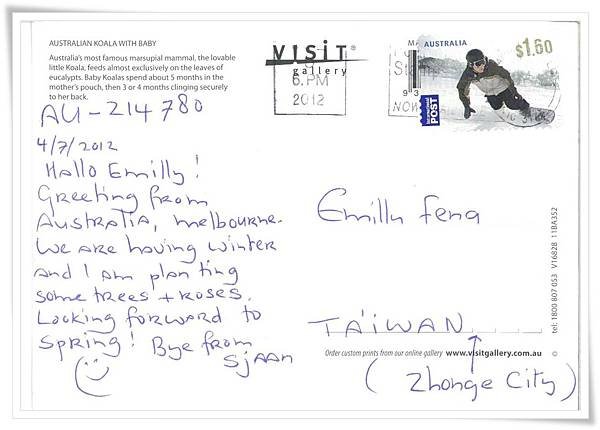 AUSTRALIAN KOALA WITH BABY
Australia's most famous marsupial mammal, the lovable
little Koala, feeds almost exclusively on the leaves of
eucalypts. Baby Koalas spend about 5 months in the
mother's pouch, then 3 or 4 months clinging securely
to her back.
AU-214780
4/7/2012
Hallo Emilly!
Greeting from
Australia, Melbourne.
We are having winter
and I am planting
some trees + roses.
Looking forward to
Spring! Bye from
Sjaan
VISIT
gallery
6.PM
2012
NOW
AUSTRALIA
$1.60
International
POST
Emilly Feng
TAIWAN
(Zhonge City)
Order custom prints from our online gallery www.visitgallery.com.au
© tel: 1800 807 053 V16828 11BA352